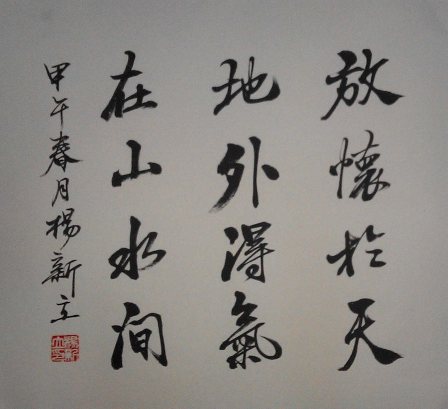 放懷於天
地外得氣
在山水澗
甲午春月楊新立